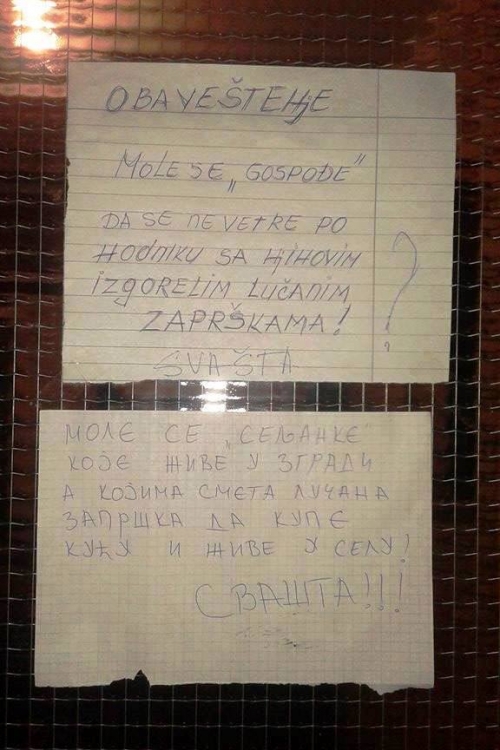 OBAVEŠTEЊE
MOLE SE „GOSPOĐE"
DA SE NE VETRE PO
HODNIKU SA ЊIHOVIM
IZGORELIM LUČANIM
ZAPRŠKAMA!
SVAŠTA
?
МОЛЕ СЕ „СЕЉАНКЕ"
КОЈЕ ЖИВЕ У ЗГРАДИ
А КОЈИМА СМЕТА ЛУЧАНА
ЗАПРШКА ДА КУПЕ
КУЋУ И ЖИВЕ У СЕЛУ!
СВАШТА!!!